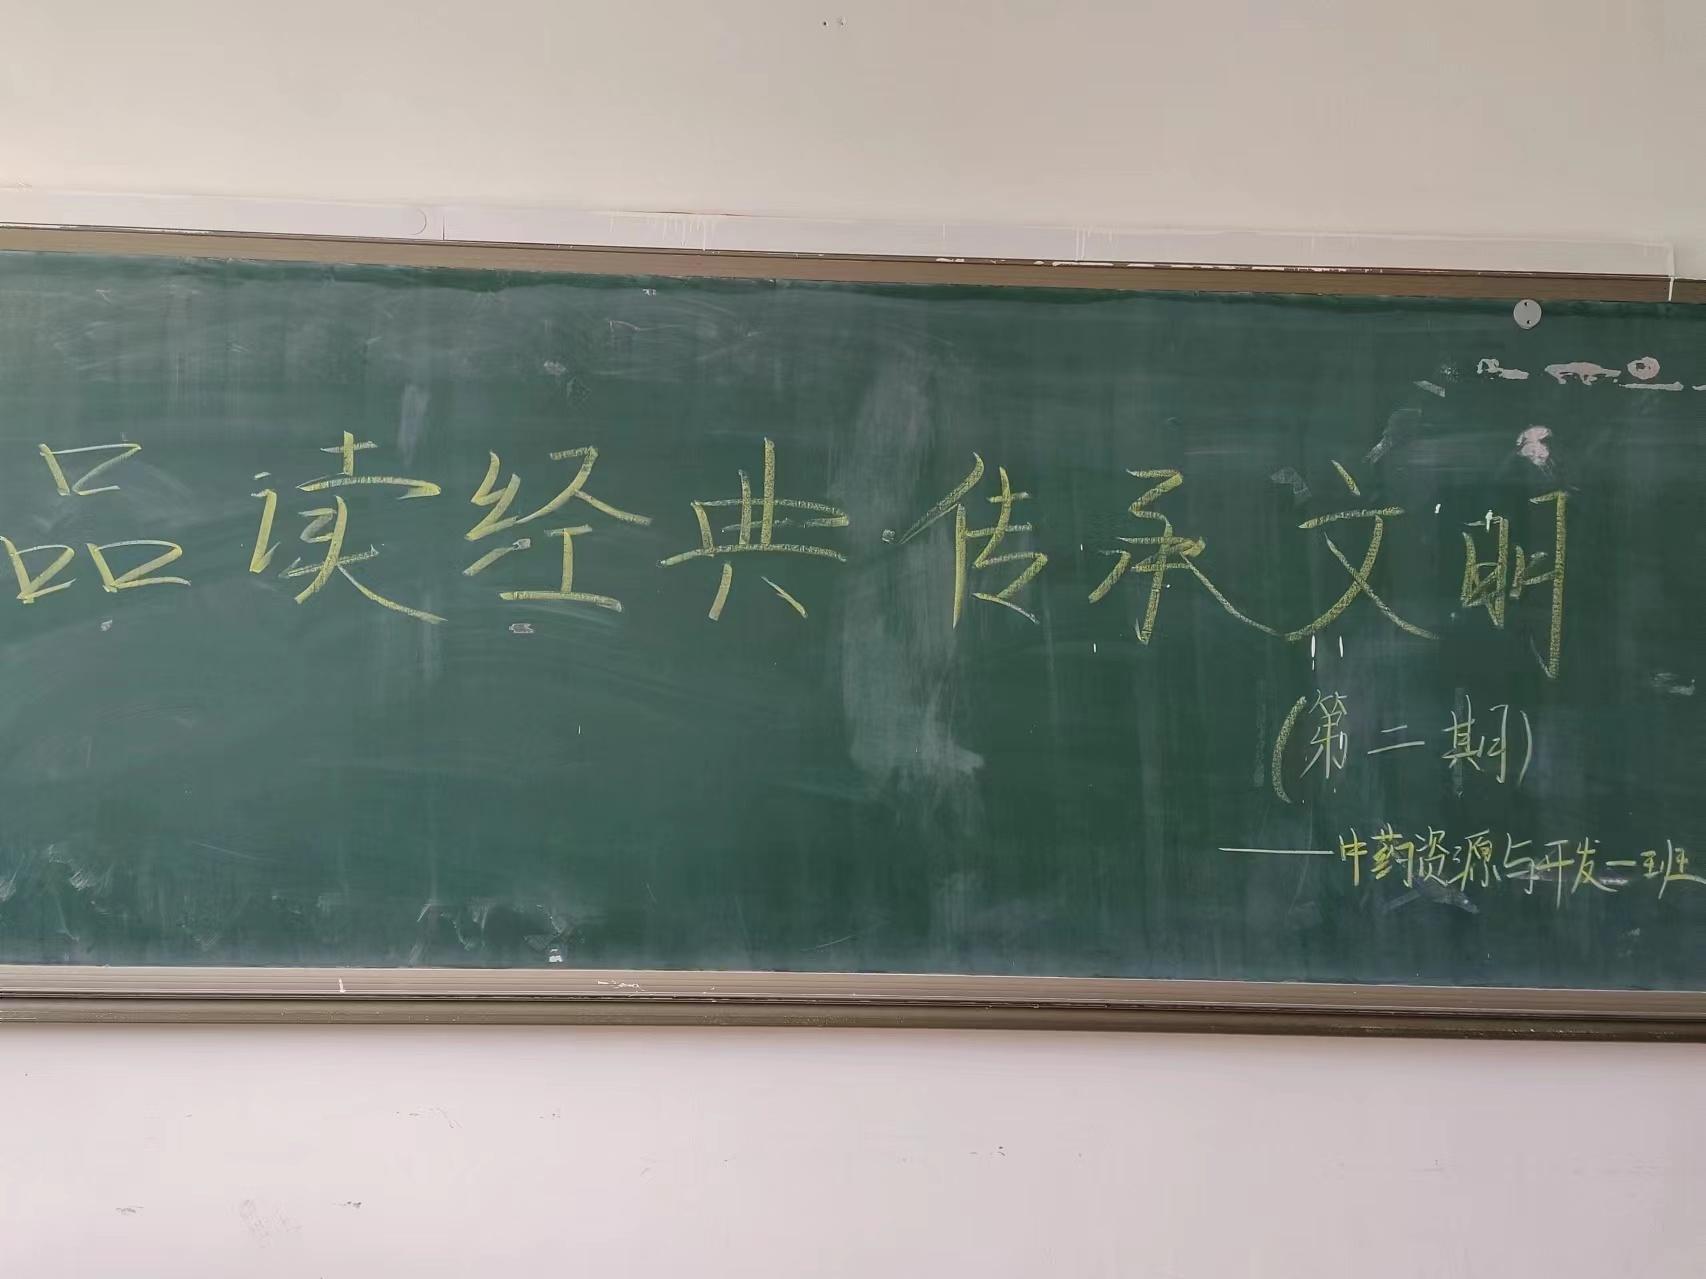 品读经典·传承文明
(第二期)
——中药资源与开发一班